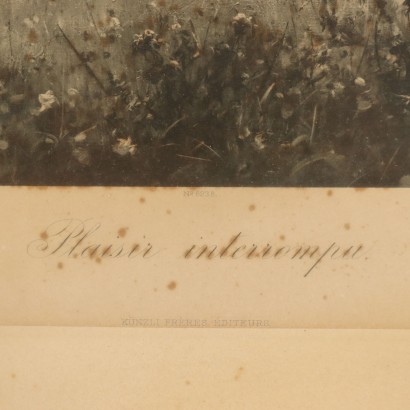 Plaisir interrompu.
KÜNZLI FRÈRES ÉDITEURS